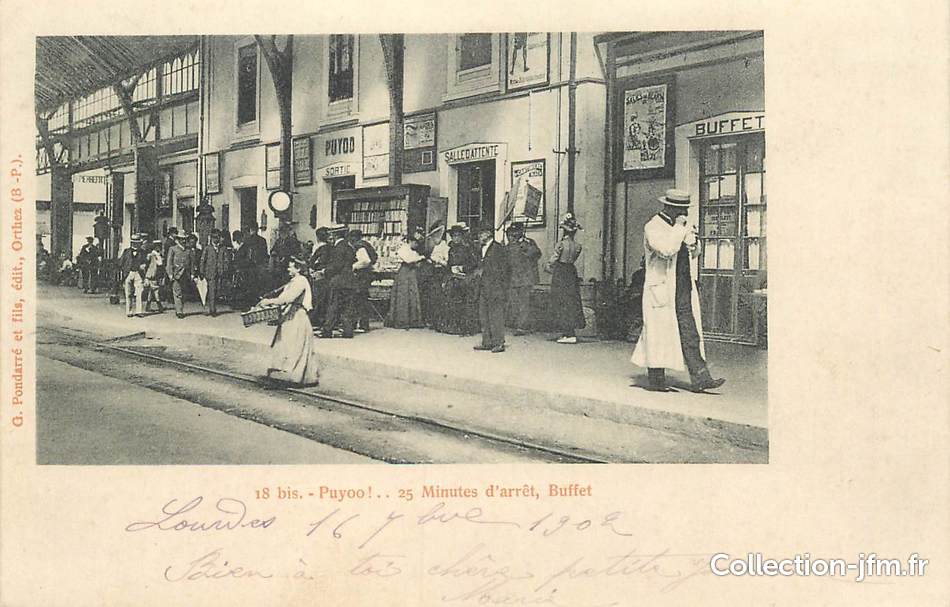 PUYOO
SORTIE
SALLE D'ATTENTE
BUFFET
G. Pondarré et fils, édit., Orthez (B.-P.).
18 bis. - Puyoo!.. 25 Minutes d'arrêt, Buffet
Lourdes 16 7bre 1902
Bien à toi chère petite
Collection-jfm.fr